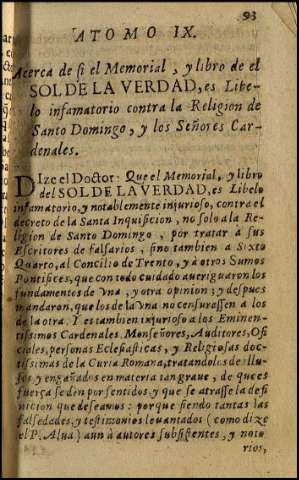 93
ATOMO IX.
Acerca de si el Memorial, y libro de el
SOL DE LA VERDAD, es Libe-
lo infamatorio contra la Religion de
Santo Domingo, y los Señores Car-
denales.
DIze el Doctor: Que el Memorial, y libro
del SOL DE LA VERDAD, es Libelo
infamatorio, y notablemente injurioso, contra el
decreto de la Santa Inquisicion, no solo a la Re-
ligion de Santo Domingo, por tratar à sus
Escritores de Falsarios, sino tambien a Sixto
Quarto, al Concilio de Trento, y à otros Sumos
Pontifices, que con todo cuidado averiguaron los
fundamentos de vna, y otra opinion; y despues
mandaron, que los de la vna no censurassen a los
de la otra. Y es tambien injurioso a los Eminen-
tissimos Cardenales, Monseñores, Auditores, Ofi
ciales, personas Eclesiasticas, y Religiosas doc-
tissimas de la Curia Romana, tratandolos de Ilu-
sos, y engañados en materia tan grave, de que es
fuerça se den por sentidos, y que se atrasse la defi
nicion que deseamos: porque siendo tantas las
falsedades, y testimonios levantados (como dize
el P. Alva) aun à autores subsistentes, y noto
rios,